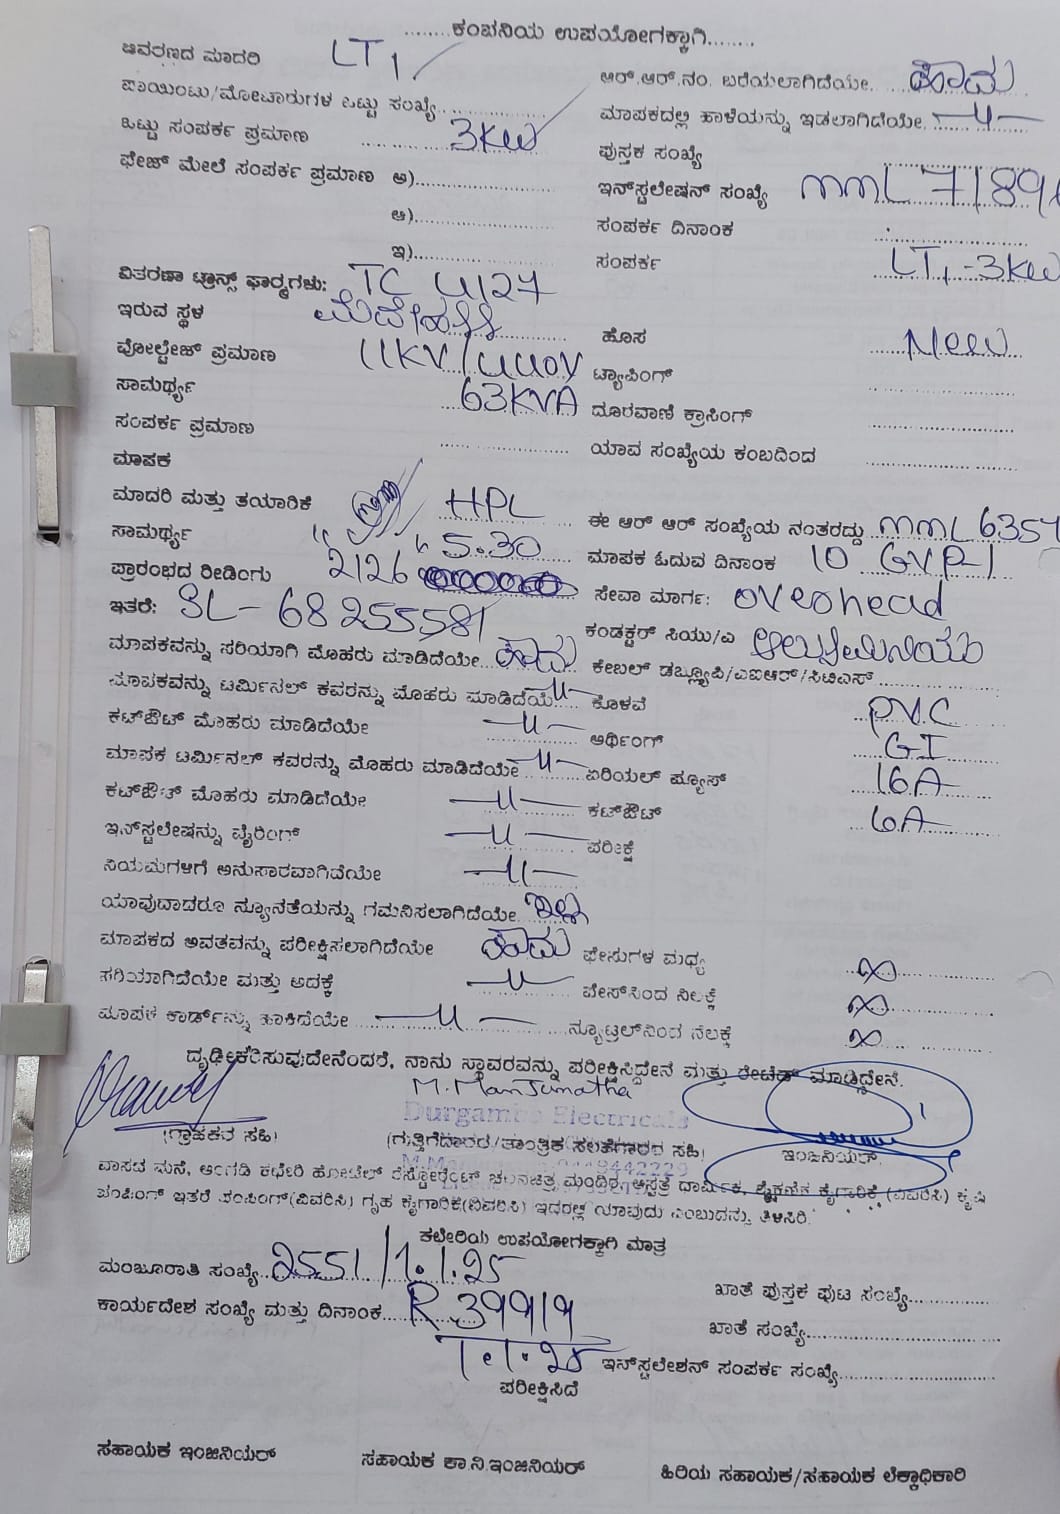 ........ಕಂಪನಿಯ ಉಪಯೋಗಕ್ಕಾಗಿ........
ಆವರಣದ ಮಾದರಿ LT1
ಆರ್.ಆರ್.ನಂ. ಬರೆಯಲಾಗಿದೆಯೇ. ಹೌದು
ಪಾಯಿಂಟು/ಮೋಟಾರುಗಳ ಒಟ್ಟು ಸಂಖ್ಯೆ
ಮಾಪಕದಲ್ಲಿ ಹಾಳೆಯನ್ನು ಇಡಲಾಗಿದೆಯೇ. —u—
ಒಟ್ಟು ಸಂಪರ್ಕ ಪ್ರಮಾಣ 3KW
ಪುಸ್ತಕ ಸಂಖ್ಯೆ
ಫೇಜ್ ಮೇಲೆ ಸಂಪರ್ಕ ಪ್ರಮಾಣ ಅ)
ಇನ್‌ಸ್ಟಲೇಷನ್ ಸಂಖ್ಯೆ MML 7189
ಆ)
ಸಂಪರ್ಕ ದಿನಾಂಕ
ಇ)
ಸಂಪರ್ಕ LT1-3KW
ವಿತರಣಾ ಟ್ರಾನ್ಸ್ ಫಾರ್ಮ್ರಗಳು: TC 4127
ಇರುವ ಸ್ಥಳ
ಹೊಸ New
ವೋಲ್ಟೇಜ್ ಪ್ರಮಾಣ 11KV/440V
ಟ್ಯಾಪಿಂಗ್
ಸಾಮರ್ಥ್ಯ 63KVA
ದೂರವಾಣಿ ಕ್ರಾಸಿಂಗ್
ಸಂಪರ್ಕ ಪ್ರಮಾಣ
ಯಾವ ಸಂಖ್ಯೆಯ ಕಂಬದಿಂದ
ಮಾಪಕ
ಮಾದರಿ ಮತ್ತು ತಯಾರಿಕೆ HPL
ಈ ಆರ್ ಆರ್ ಸಂಖ್ಯೆಯ ನಂತರದ್ದು MML 6357
ಸಾಮರ್ಥ್ಯ 5-30
ಮಾಪಕ ಓದುವ ದಿನಾಂಕ 10 GVP-1
ಪ್ರಾರಂಭದ ರೀಡಿಂಗು 2126
ಸೇವಾ ಮಾರ್ಗ: overhead
ಇತರೆ: SL-68255581
ಕಂಡಕ್ಟರ್ ಸಿಯು/ಎ ಅಲ್ಯುಮಿನಿಯಂ
ಮಾಪಕವನ್ನು ಸರಿಯಾಗಿ ಮೊಹರು ಮಾಡಿದೆಯೇ ಹೌದು
ಕೇಬಲ್ ಡಬ್ಲ್ಯೂಪಿ/ಎಐಆರ್/ಸಿಟಿಎಸ್
ಮಾಪಕವನ್ನು ಟರ್ಮಿನಲ್ ಕವರನ್ನು ಮೊಹರು ಮಾಡಿದೆಯೆ —u—
ಕೊಳವೆ PVC
ಕಟ್‌ಔಟ್ ಮೊಹರು ಮಾಡಿದೆಯೇ —u—
ಅರ್ಥಿಂಗ್ GI
ಮಾಪಕ ಟರ್ಮಿನಲ್ ಕವರನ್ನು ಮೊಹರು ಮಾಡಿದೆಯೇ —u—
ಏರಿಯಲ್ ಫ್ಯೂಸ್ 16A
ಕಟ್‌ಔಟ್ ಮೊಹರು ಮಾಡಿದೆಯೇ —u—
ಕಟ್‌ಔಟ್ 6A
ಇನ್‌ಸ್ಟಲೇಷನ್ನು ವೈರಿಂಗ್ —u—
ಪರೀಕ್ಷೆ
ನಿಯಮಗಳಿಗೆ ಅನುಸಾರವಾಗಿದೆಯೇ —u—
ಯಾವುದಾದರೂ ನ್ಯೂನತೆಯನ್ನು ಗಮನಿಸಲಾಗಿದೆಯೇ. ಇಲ್ಲ
ಮಾಪಕದ ಆವತವನ್ನು ಪರೀಕ್ಷಿಸಲಾಗಿದೆಯೇ ಹೌದು
ಫೇಸುಗಳ ಮಧ್ಯ ∞
ಸರಿಯಾಗಿದೆಯೇ ಮತ್ತು ಅದಕ್ಕೆ —u—
ಫೇಸ್‌ನಿಂದ ನೆಲಕ್ಕೆ ∞
ಮಾಪಕ ಕಾರ್ಡ್‌ನ್ನು ಹಾಕಿದೆಯೇ —u—
ನ್ಯೂಟ್ರಲ್‌ನಿಂದ ನೆಲಕ್ಕೆ ∞
ದೃಢೀಕರಿಸುವುದೇನೆಂದರೆ, ನಾನು ಸ್ಥಾವರವನ್ನು ಪರೀಕ್ಷಿಸಿದ್ದೇನೆ ಮತ್ತು ರೇಟೆಡ್ ಮಾಡಿದ್ದೇನೆ.
M. Manjunatha
Durgamba Electricals
(ಗ್ರಾಹಕನ ಸಹಿ)
(ಗುತ್ತಿಗೆದಾರರ/ತಾಂತ್ರಿಕ ಸಲಹೆಗಾರರ ಸಹಿ)
ಇಂಜಿನಿಯರ್.
ವಾಸದ ಮನೆ, ಅಂಗಡಿ ಕಛೇರಿ ಹೋಟೆಲ್ ರೆಸ್ಟೋರೆಂಟ್ ಚಲನಚಿತ್ರ ಮಂದಿರ, ಆಸ್ಪತ್ರೆ ಧಾರ್ಮಿಕ, ಶೈಕ್ಷಣಿಕ ಕೈಗಾರಿಕೆ (ವಿವರಿಸಿ) ಕೃಷಿ
ಪಂಪಿಂಗ್ ಇತರೆ ಪಂಪಿಂಗ್(ವಿವರಿಸಿ) ಗೃಹ ಕೈಗಾರಿಕೆ(ವಿವರಿಸಿ) ಇದರಲ್ಲಿ ಯಾವುದು ಎಂಬುದನ್ನು ತಿಳಿಸಿರಿ.
ಕಛೇರಿಯ ಉಪಯೋಗಕ್ಕಾಗಿ ಮಾತ್ರ
ಮಂಜೂರಾತಿ ಸಂಖ್ಯೆ 2551/1.1.25
ಖಾತೆ ಪುಸ್ತಕ ಪುಟ ಸಂಖ್ಯೆ
ಕಾರ್ಯದೇಶ ಸಂಖ್ಯೆ ಮತ್ತು ದಿನಾಂಕ R 39919
ಖಾತೆ ಸಂಖ್ಯೆ
1.1.25
ಇನ್‌ಸ್ಟಲೇಶನ್ ಸಂಪರ್ಕ ಸಂಖ್ಯೆ
ಪರೀಕ್ಷಿಸಿದೆ
ಸಹಾಯಕ ಇಂಜಿನಿಯರ್
ಸಹಾಯಕ ಕಾ.ನಿ.ಇಂಜಿನಿಯರ್
ಹಿರಿಯ ಸಹಾಯಕ/ಸಹಾಯಕ ಲೆಕ್ಕಾಧಿಕಾರಿ